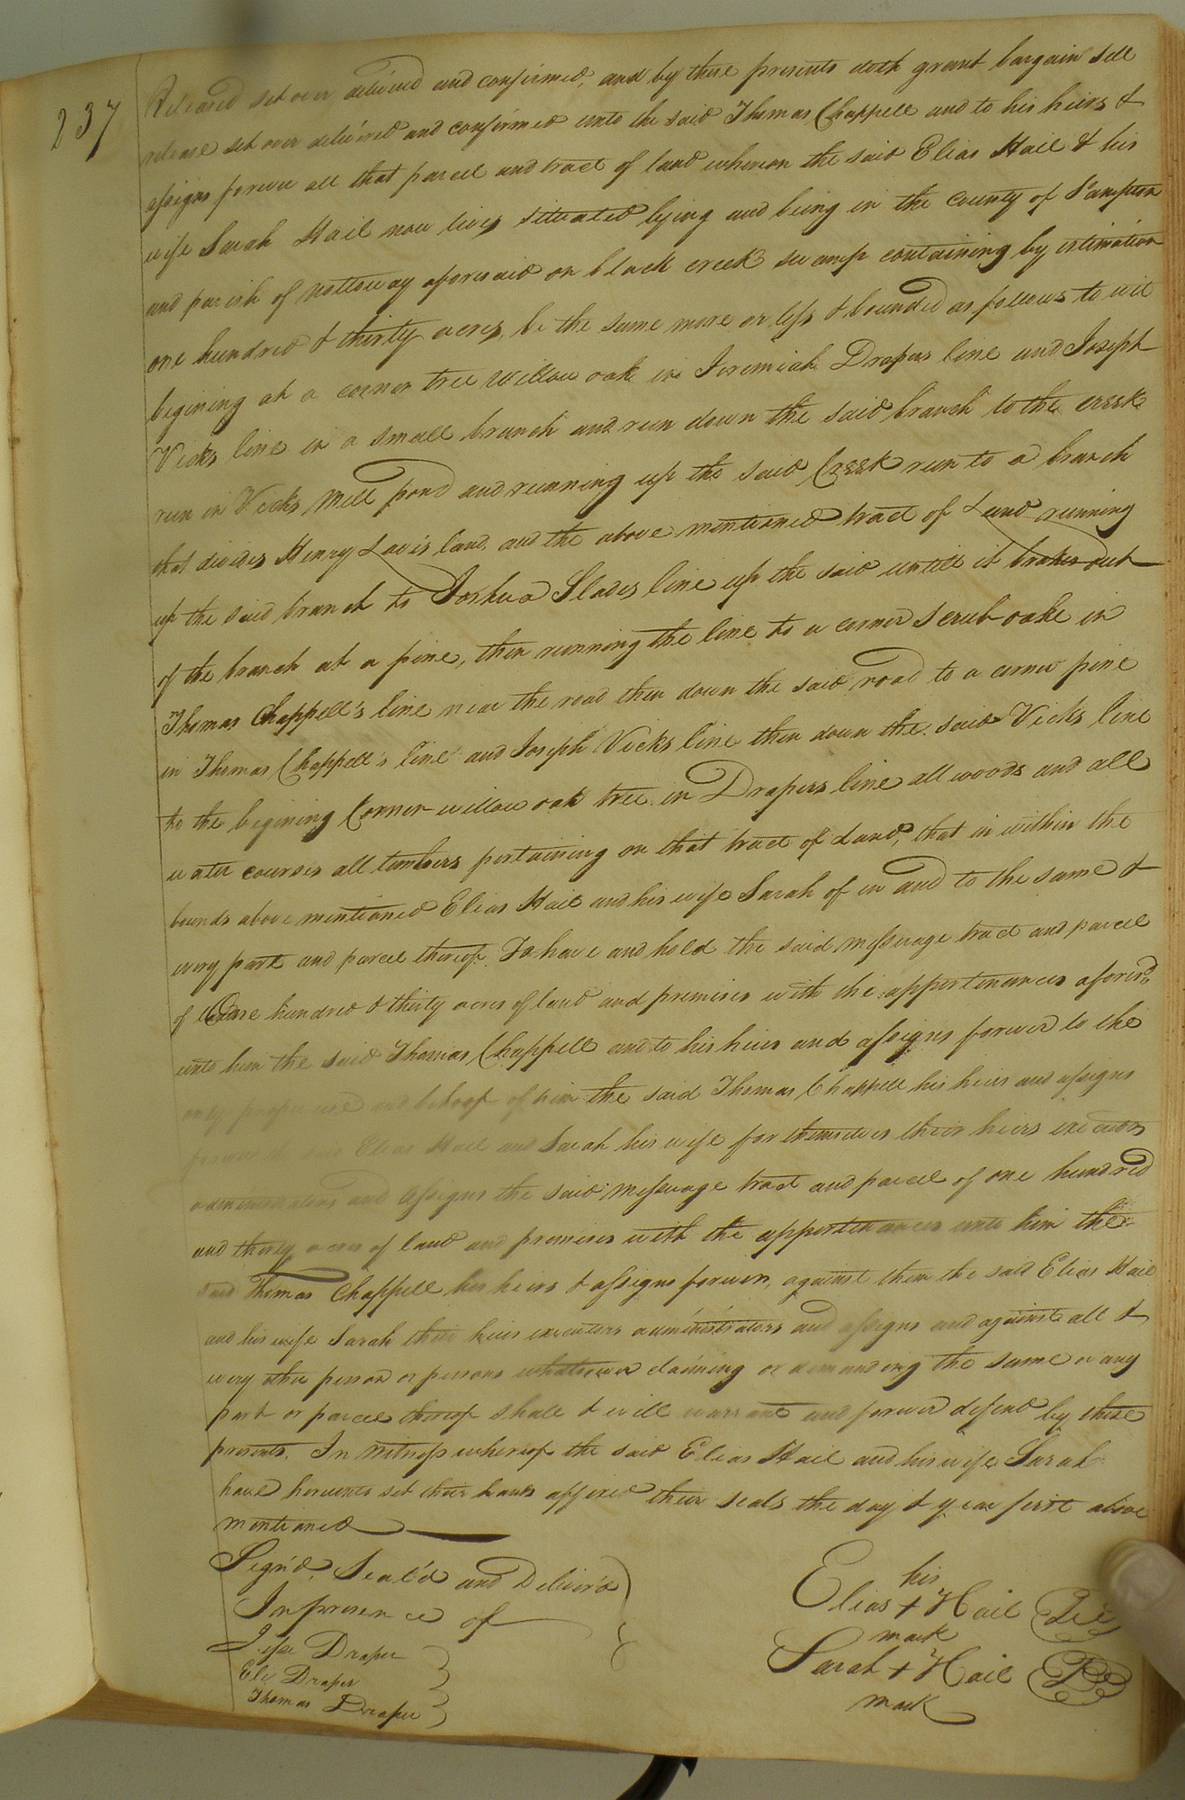 237
Released set over delivered and confirmed, and by these presents doth grant bargain sell
release set over delivered and confirmed unto the said Thomas Chappell and to his heirs &
assigns forever all that parcel and tract of land whereon the said Elias Hail & his
wife Sarah Hail now lives situated lying and being in the county of Sampton
and parish of nottoway aforesaid on black creek swamp containing by estimation
one hundred & thirty acres, be the same more or less & bounded as follows to wit
begining at a corner tree willow oak in Jeremiah Drapers line and Joseph
Vicks line in a small branch and run down the said branch to the creek
run in Vicks Mill pond and running up the said Creek run to a branch
that divides Henry land, and the above mentioned tract of Land running
up the said branch to Joshua Slades line up the said untill it brakes out
of the branch at a pine, then running the line to a corner scrub oake in
Thomas Chappell's line near the road then down the said road to a corner pine
in Thomas Chappell's line and Joseph Vicks line then down the said Vicks line
to the begining Corner willow oak tree in Drapers line all woods and all
water courses all timbers pertaining on that tract of Land, that in within the
bounds above mentioned Elias Hail and his wife Sarah of in and to the same &
every part and parcel thereof. To have and hold the said messuage tract and parcel
of One hundred & thirty acres of land and premises with the appertinances aforesd.
unto him the said Thomas Chappell and to his heirs and assigns forever to the
only proper use and behoof of him the said Thomas Chappell his heirs and assigns
forever said Elias Hail and Sarah his wife for themselves their heirs executors
administrators and assigns the said messuage tract and parcel of one hundred
and thirty acres of land and premises with the appertinances unto him the
said Thomas Chappell his heirs & assigns forever, against them the said Elias Hail
and his wife Sarah their heirs executors administrators and assigns and against all &
every other person or persons whatsoever claiming or demanding the same or any
part or parcel thereof shall & will warrant and forever defend by these
presents. In witness whereof the said Elias Hail and his wife Sarah
have hereunto set their hands affixed their seals the day & year first above
mentioned
Sign'd, Seal'd and Deliver'd
In presence of
Jesse Draper
Eli Draper
Thomas Draper
his
Elias + Hail
mark
Sarah + Hail
mark